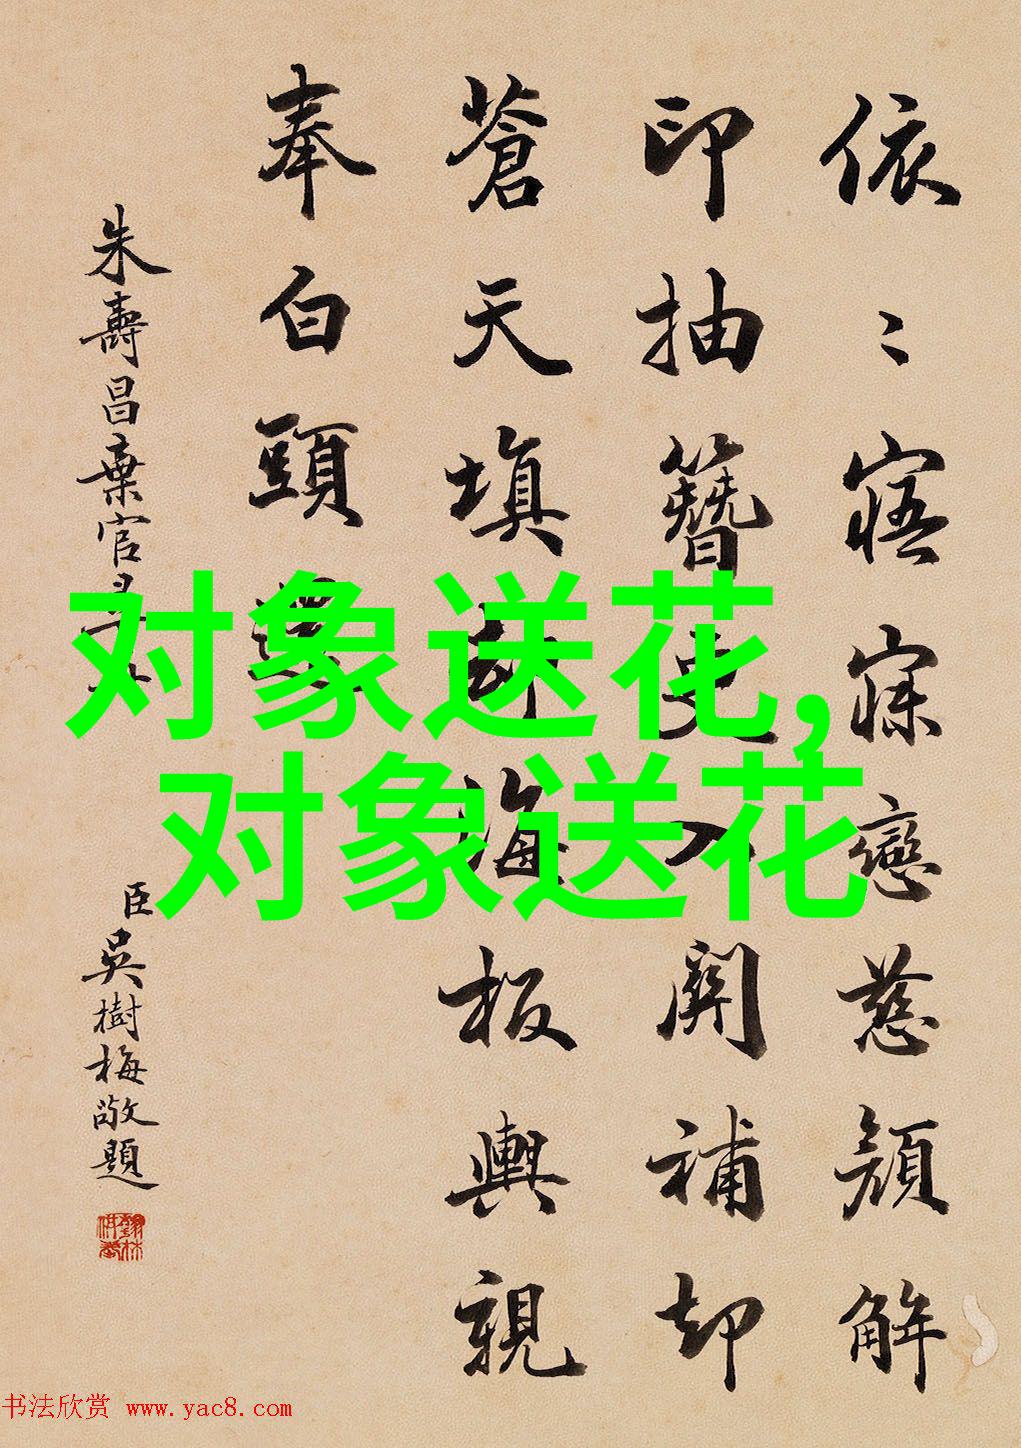 依〻寤寐戀慈顏解
印抽簪更入關補却
蒼天填却海板輿親
奉白頭還
朱壽昌棄官尋
臣吳樹梅敬題
对象送花,
对象送花
书法欣赏 www.yac8.com